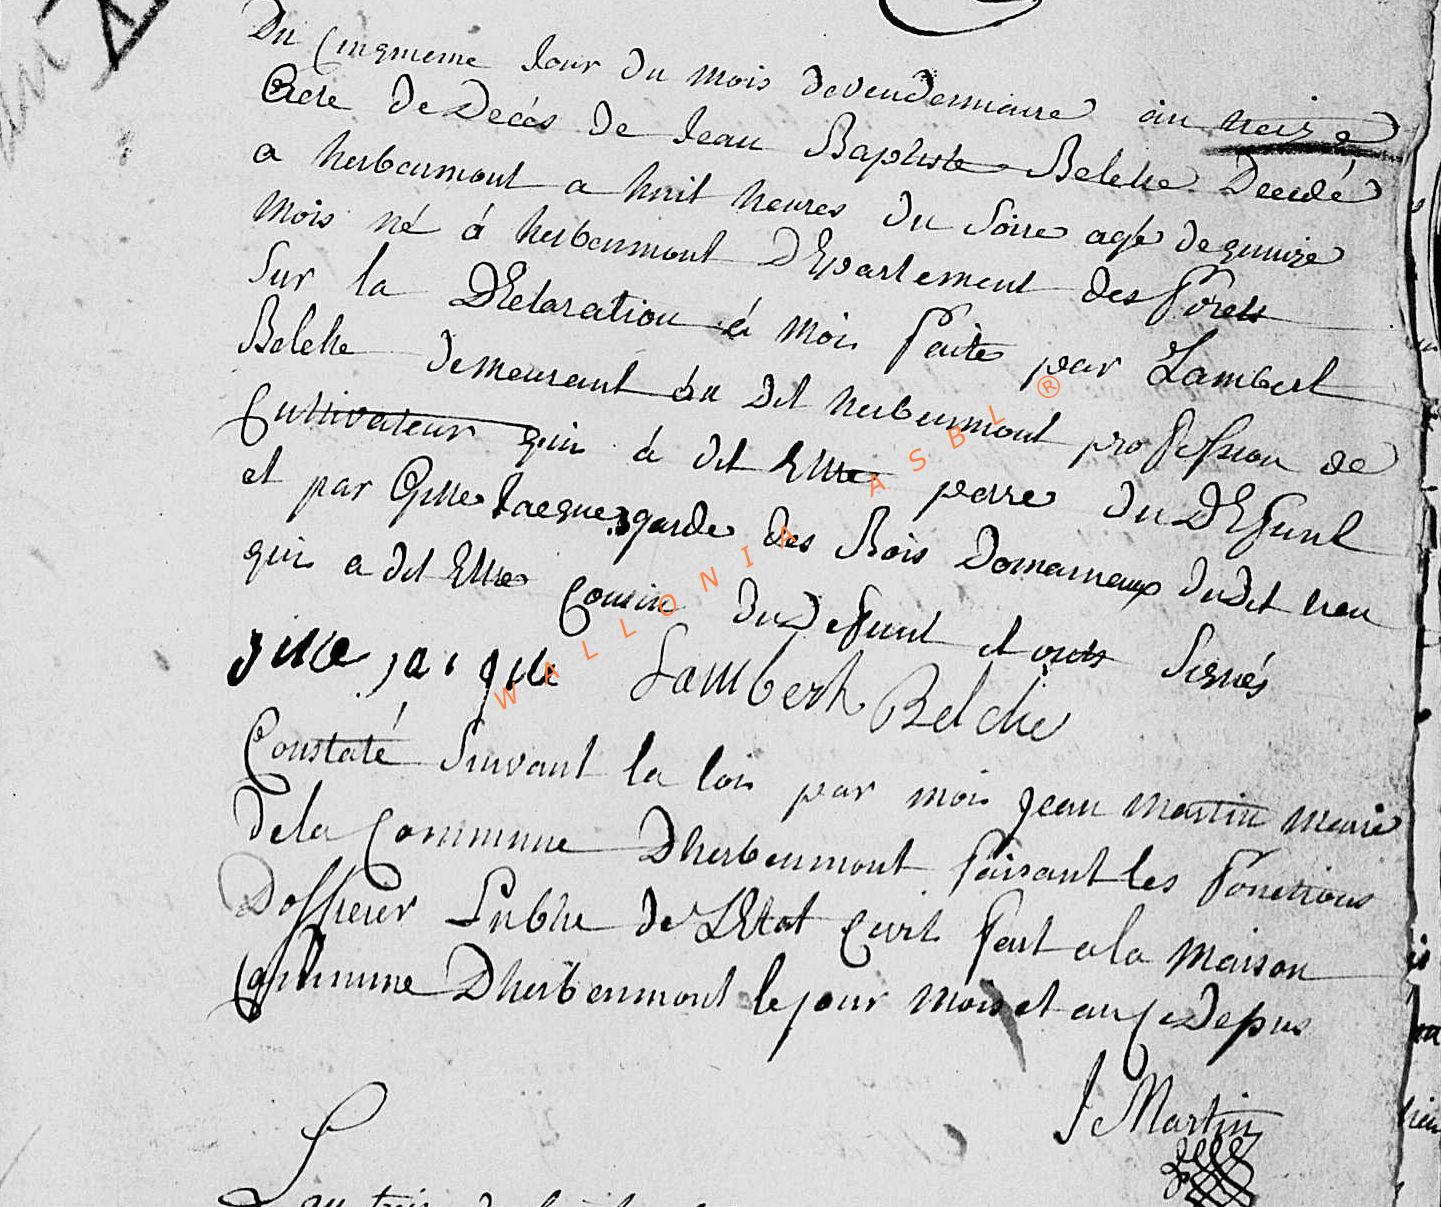 Du Cinqmeme Jour du mois devendemiaire an treize
Acte de Decés de Jean Baptiste Belche Decedé
a herbeumont a huit heures du soire agé de quinze
mois né á herbeumont DEpartement des forets
sur la DEclaration á moi faite par Lambert
Belche demeurant áu dit herbeumont profession de
Cultivateur qui á dit Ettre perre du DEfunt
et par Gille Jacques garde des Bois Domameaux dudit lieu
qui a dit Ettre Cousin du Defunt et onts signés
gille jaique Lambert Belche
Constaté suivant la loi par moi Jean Martin maire
de la Commune Dherbeumont faisant les fonctions
Dofficier Public de LEtat Civil fait a la maison
Commune Dherbeumont le jour mois et an Ce Depus
J Martin
WALLONIA ASBL ®